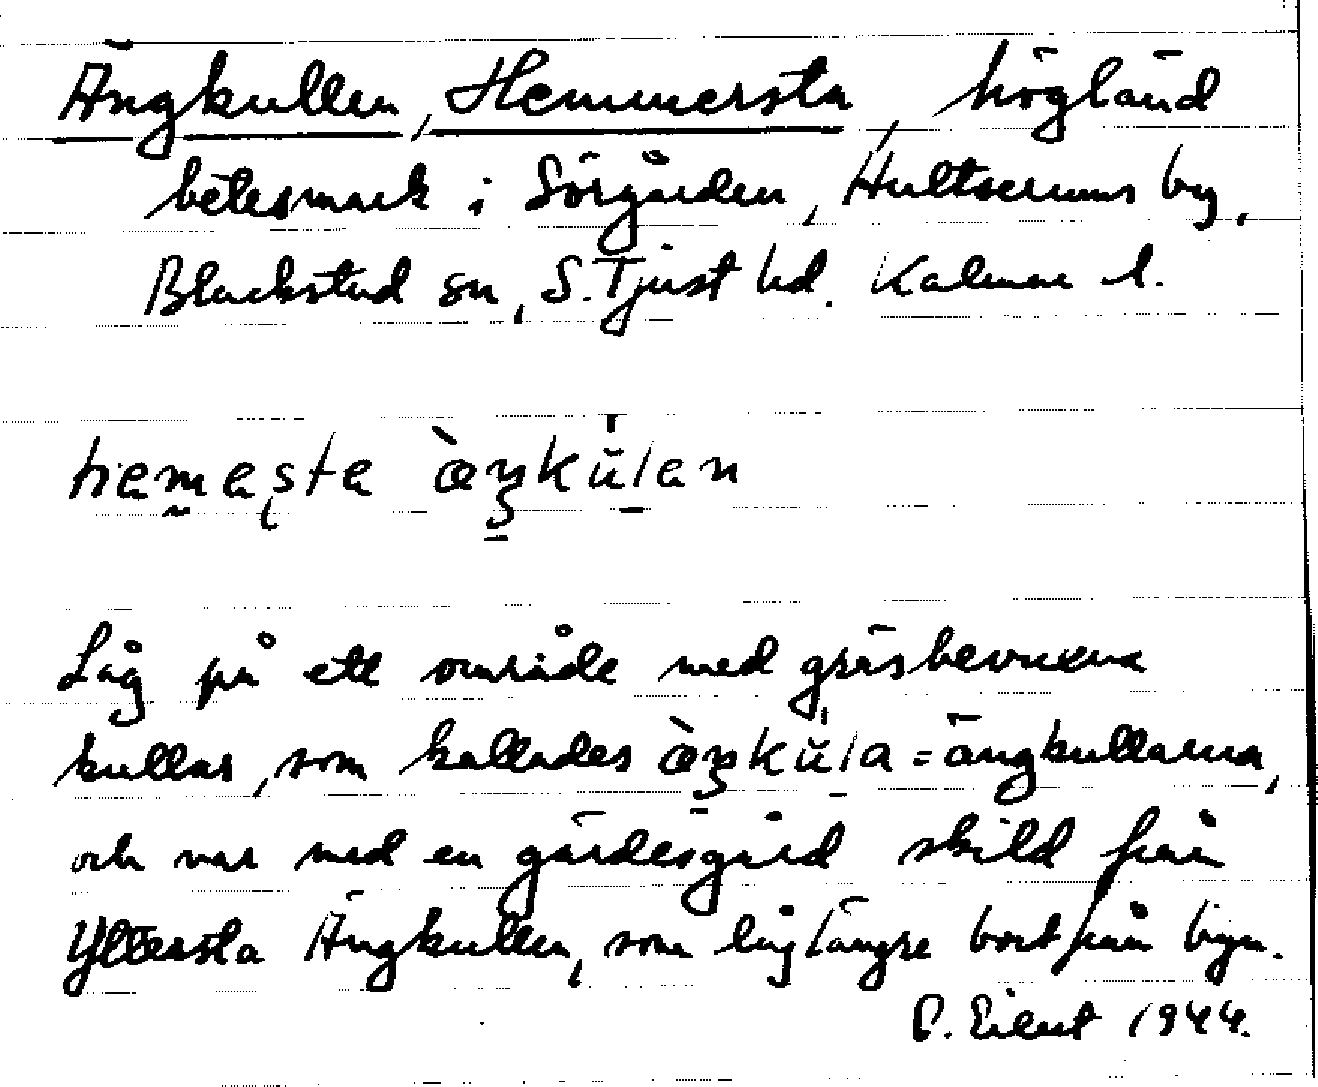 Ängkullen, Hemmersta, högländ
betesmark i Sörgården, Hultserums by,
Blackstad sn, S. Tjust hd. Kalmar l.
hemesta æŋkŭlen
Låg på ett område med gräsbevuxna
kullar, som kallades æŋkŭla = ängkullarna,
och var med en gärdesgård skild från
Yttersta Ängkullen, som låg längre bort från byn.
1944.